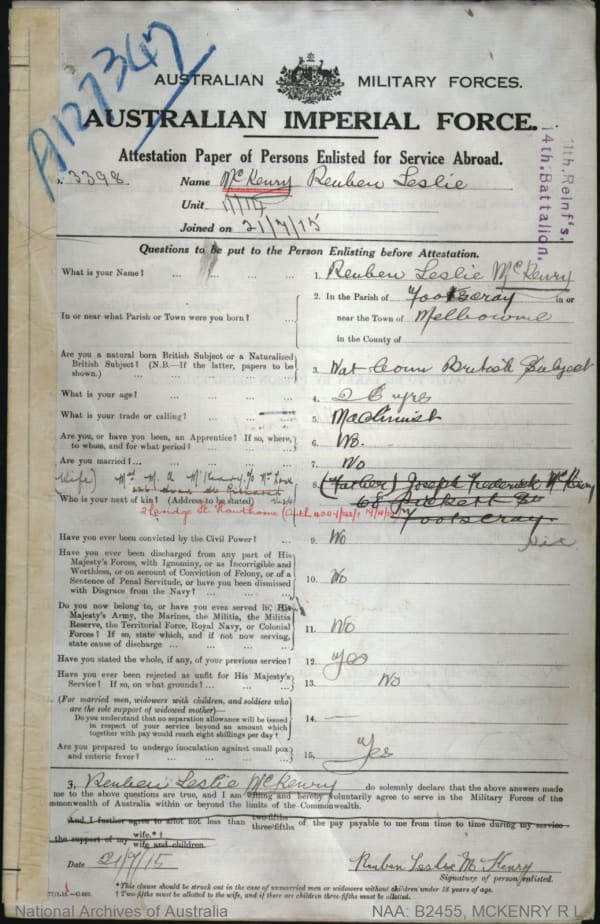 A127347
AUSTRALIAN MILITARY FORCES.
AUSTRALIAN IMPERIAL FORCE.
Attestation Paper of Persons Enlisted for Service Abroad.
11th. Reinf's.
14th. Battalion.
3398 Name McKenry Reuben Leslie
Unit 11/14
Joined on 21/7/15
Questions to be put to the Person Enlisting before Attestation.
What is your Name? ... 1. Reuben Leslie McKenry
In or near what Parish or Town were you born? ... 2. In the Parish of Footscray in or
near the Town of Melbourne
in the County of
Are you a natural born British Subject or a Naturalized
British Subject? (N.B.—If the latter, papers to be
shown.) 3. Nat born British Subject
What is your age? 4. 26 yrs
What is your trade or calling? 5. Machinist
Are you, or have you been, an Apprentice? If so, where,
to whom, and for what period? 6. No.
Are you married? 7. No
(Wife) Mrs M. A McKenry c/o Mrs
Who is your next of kin? (Address to be stated) 8. (Father) Joseph Frederick McKenry
68 Pickett St
Footscray
St Hawthorne
Vic
Have you ever been convicted by the Civil Power? 9. No
Have you ever been discharged from any part of His
Majesty's Forces, with Ignominy, or as Incorrigible and
Worthless, or on account of Conviction of Felony, or of a
Sentence of Penal Servitude, or have you been dismissed
with Disgrace from the Navy? 10. No
Do you now belong to, or have you ever served in, His
Majesty's Army, the Marines, the Militia, the Militia
Reserve, the Territorial Force, Royal Navy, or Colonial
Forces? If so, state which, and if not now serving,
state cause of discharge 11. No
Have you stated the whole, if any, of your previous service? 12. Yes
Have you ever been rejected as unfit for His Majesty's
Service? If so, on what grounds? 13. No
(For married men, widowers with children, and soldiers who
are the sole support of widowed mother)—
Do you understand that no separation allowance will be issued
in respect of your service beyond an amount which
together with pay would reach eight shillings per day? 14. —
Are you prepared to undergo inoculation against small pox
and enteric fever? 15. Yes
I, Reuben Leslie McKenry do solemnly declare that the above answers made
me to the above questions are true, and I am willing and hereby voluntarily agree to serve in the Military Forces of the
mmonwealth of Australia within or beyond the limits of the Commonwealth.
And I further agree to allot not less than two-fifths
three-fifths of the pay payable to me from time to time during my service
the support of my wife.*†
wife and children.
Date 21/7/15 Reuben Leslie McKenry
Signature of person enlisted.
*This clause should be struck out in the case of unmarried men or widowers without children under 18 years of age.
† Two-fifths must be allotted to the wife, and if there are children three-fifths must be allotted.
National Archives of Australia NAA: B2455, MCKENRY R L